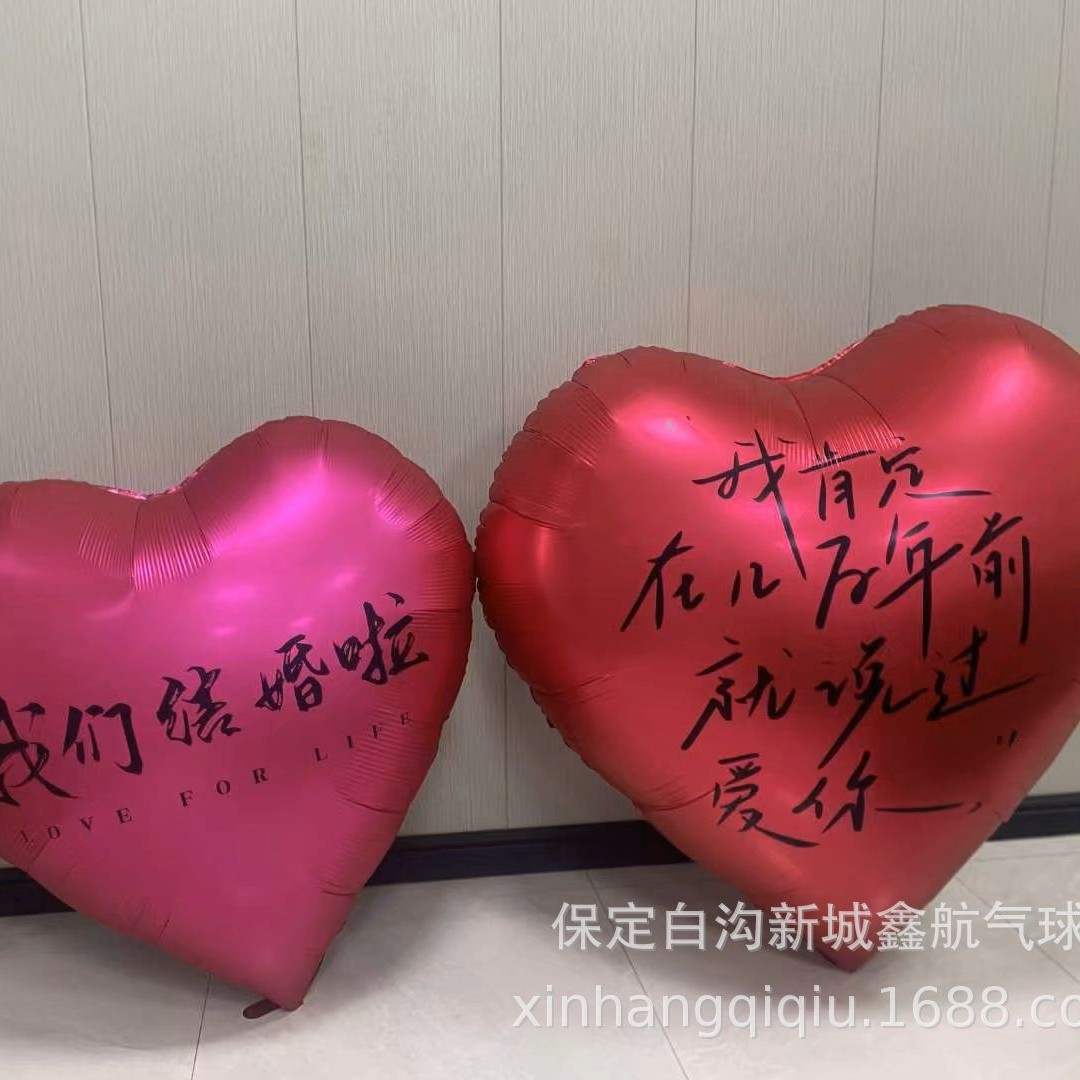 我们结婚啦
LOVE FOR LIFE
我肯定
在几百年前
就说过
爱你
保定白沟新城鑫航气球
xinhangqiqiu.1688.co